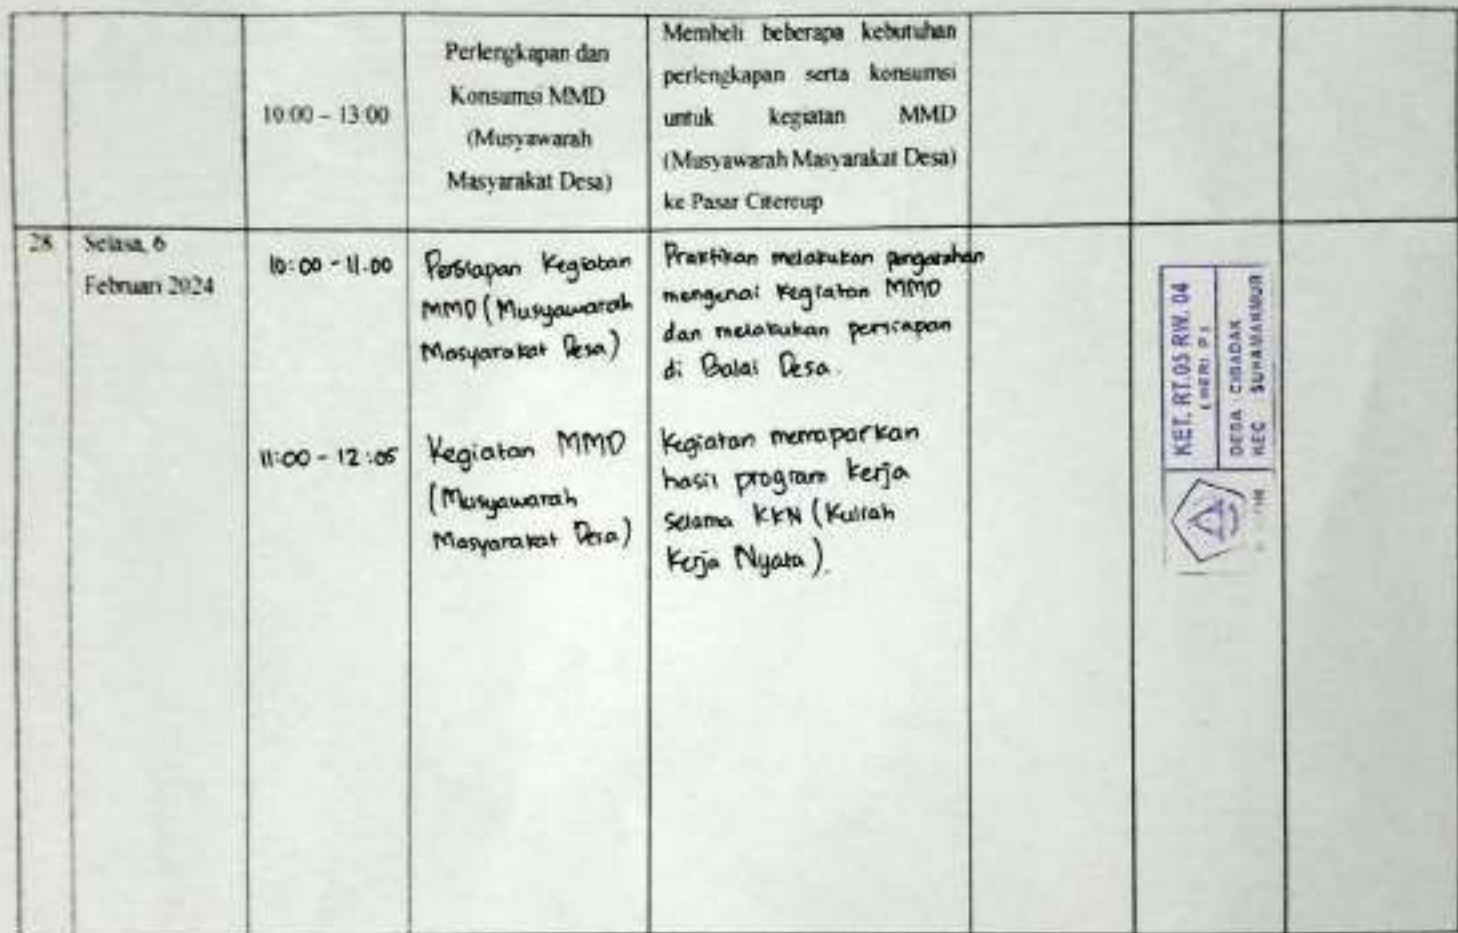 10:00 – 13:00
Perlengkapan dan
Konsumsi MMD
(Musyawarah
Masyarakat Desa)
Membeli beberapa kebutuhan
perlengkapan serta konsumsi
untuk kegiatan MMD
(Musyawarah Masyarakat Desa)
ke Pasar Citereup
28
Selasa, 6
Februari 2024
10:00 - 11.00
Persiapan Kegiatan
MMD (Musyawarah
Masyarakat Desa)
Praktikan melakukan pengarahan
mengenai kegiatan MMD
dan melakukan persiapan
di Balai Desa.
11:00 - 12:05
Kegiatan MMD
(Musyawarah
Masyarakat Desa)
Kegiatan memaparkan
hasil program kerja
selama KKN (Kuliah
Kerja Nyata).
KET. RT.05 RW. 04
(HERI P)
DESA CIBADAK
KEC SUKAMAKMUR